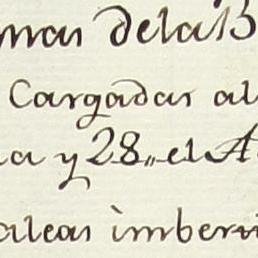 mas dela B
Cargadas al
a y 28,, el A
aleas imber